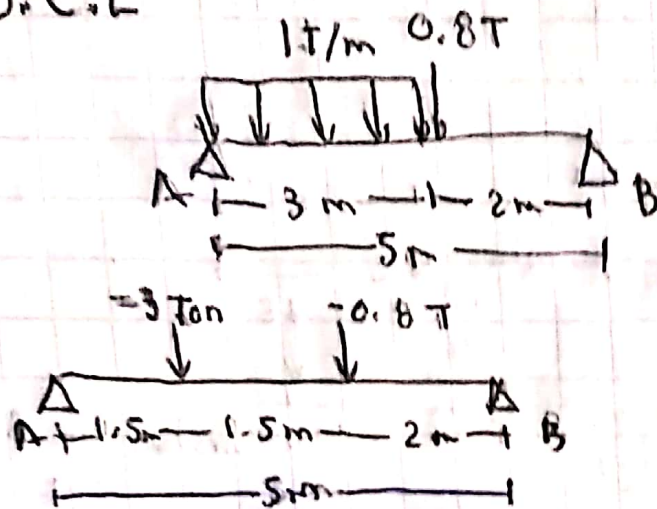 D.C.L
1T/m 0.8T
A 3 m 2m B
5m
-3 Ton -0.8 T
A 1.5m 1.5m 2m B
5m